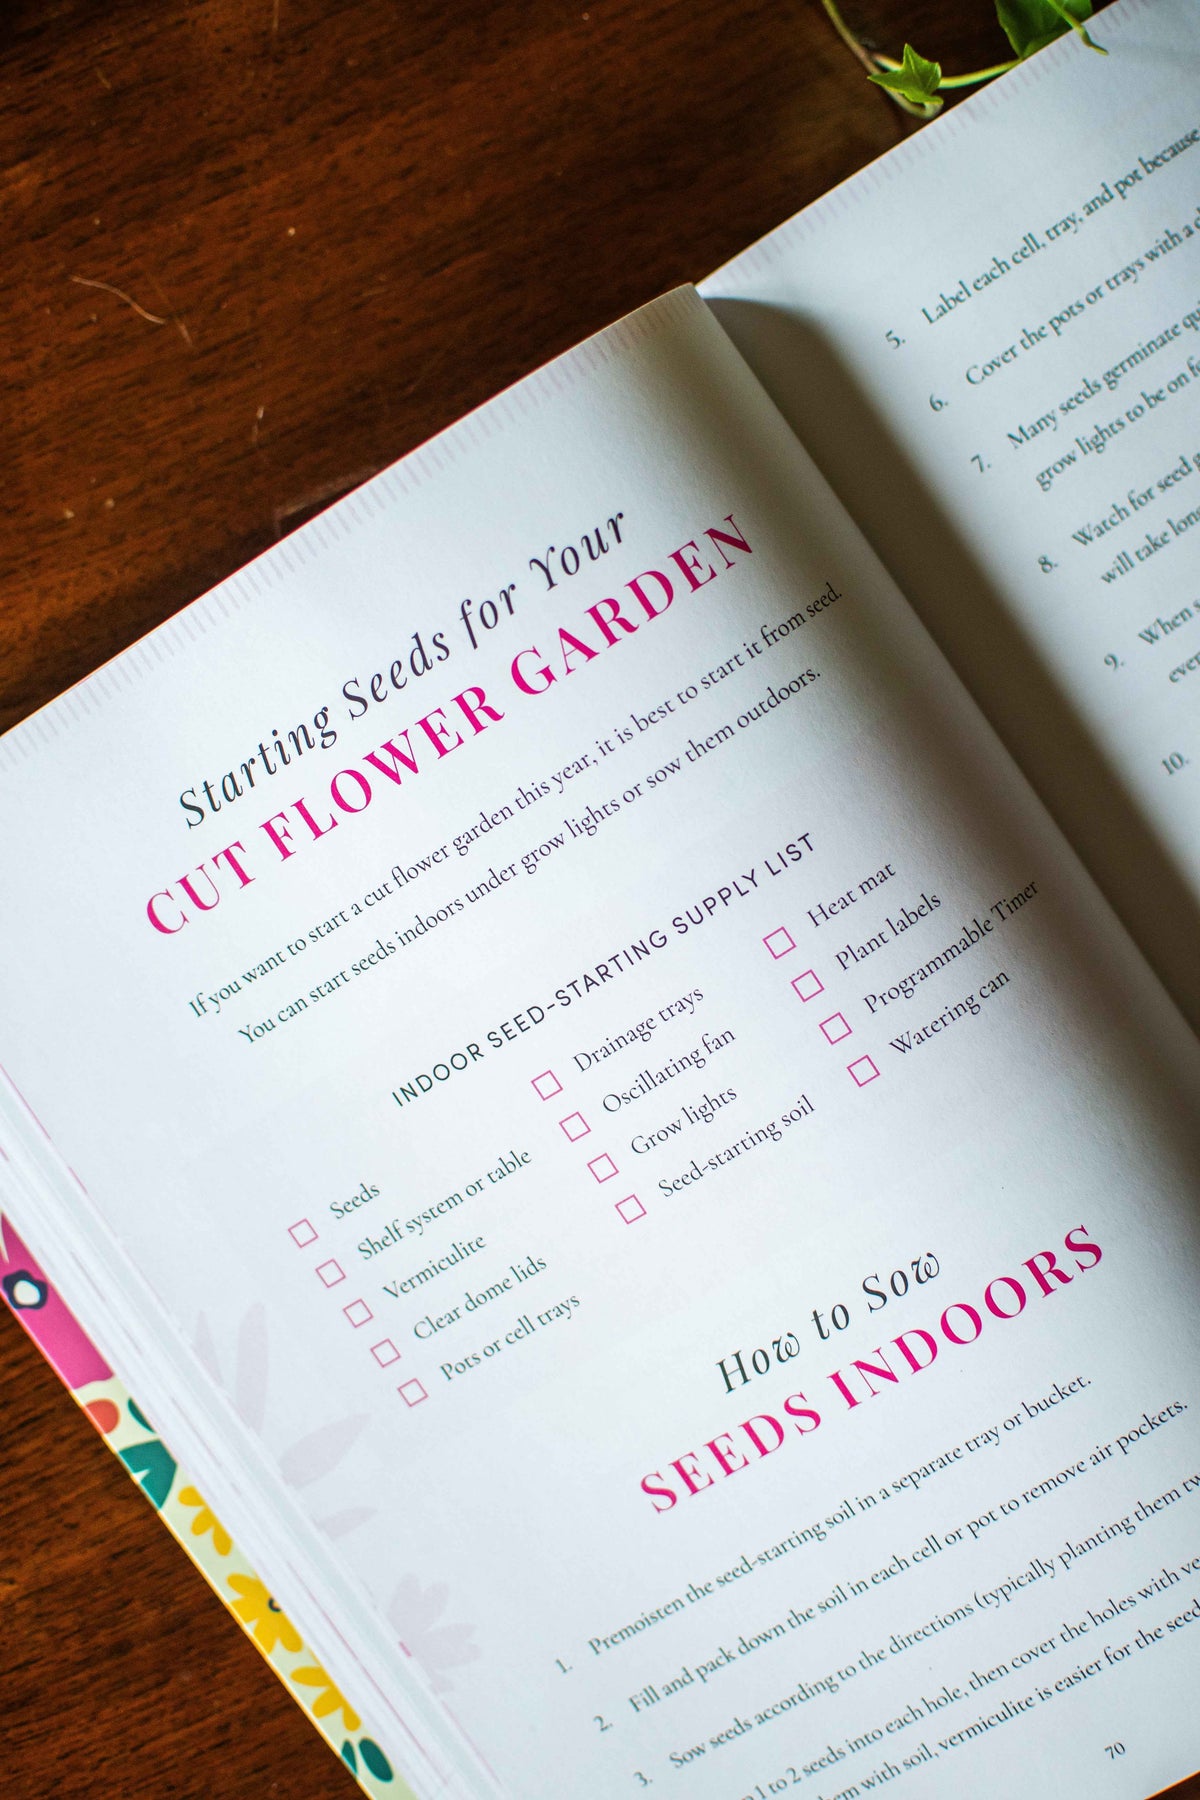 Starting Seeds for Your
CUT FLOWER GARDEN
If you want to start a cut flower garden this year, it is best to start it from seed.
You can start seeds indoors under grow lights or sow them outdoors.
INDOOR SEED-STARTING SUPPLY LIST
Seeds
Shelf system or table
Vermiculite
Clear dome lids
Pots or cell trays
Drainage trays
Oscillating fan
Grow lights
Seed-starting soil
Heat mat
Plant labels
Programmable Timer
Watering can
How to Sow
SEEDS INDOORS
1. Premoisten the seed-starting soil in a separate tray or bucket.
2. Fill and pack down the soil in each cell or pot to remove air pockets.
3. Sow seeds according to the directions (typically planting them
1 to 2 seeds into each hole, then cover the holes with
with soil, vermiculite is easier for the
70
5. Label each cell, tray, and pot because
6. Cover the pots or trays with a
7. Many seeds germinate
grow lights to be on
8. Watch for seed
will take
9. When
10.